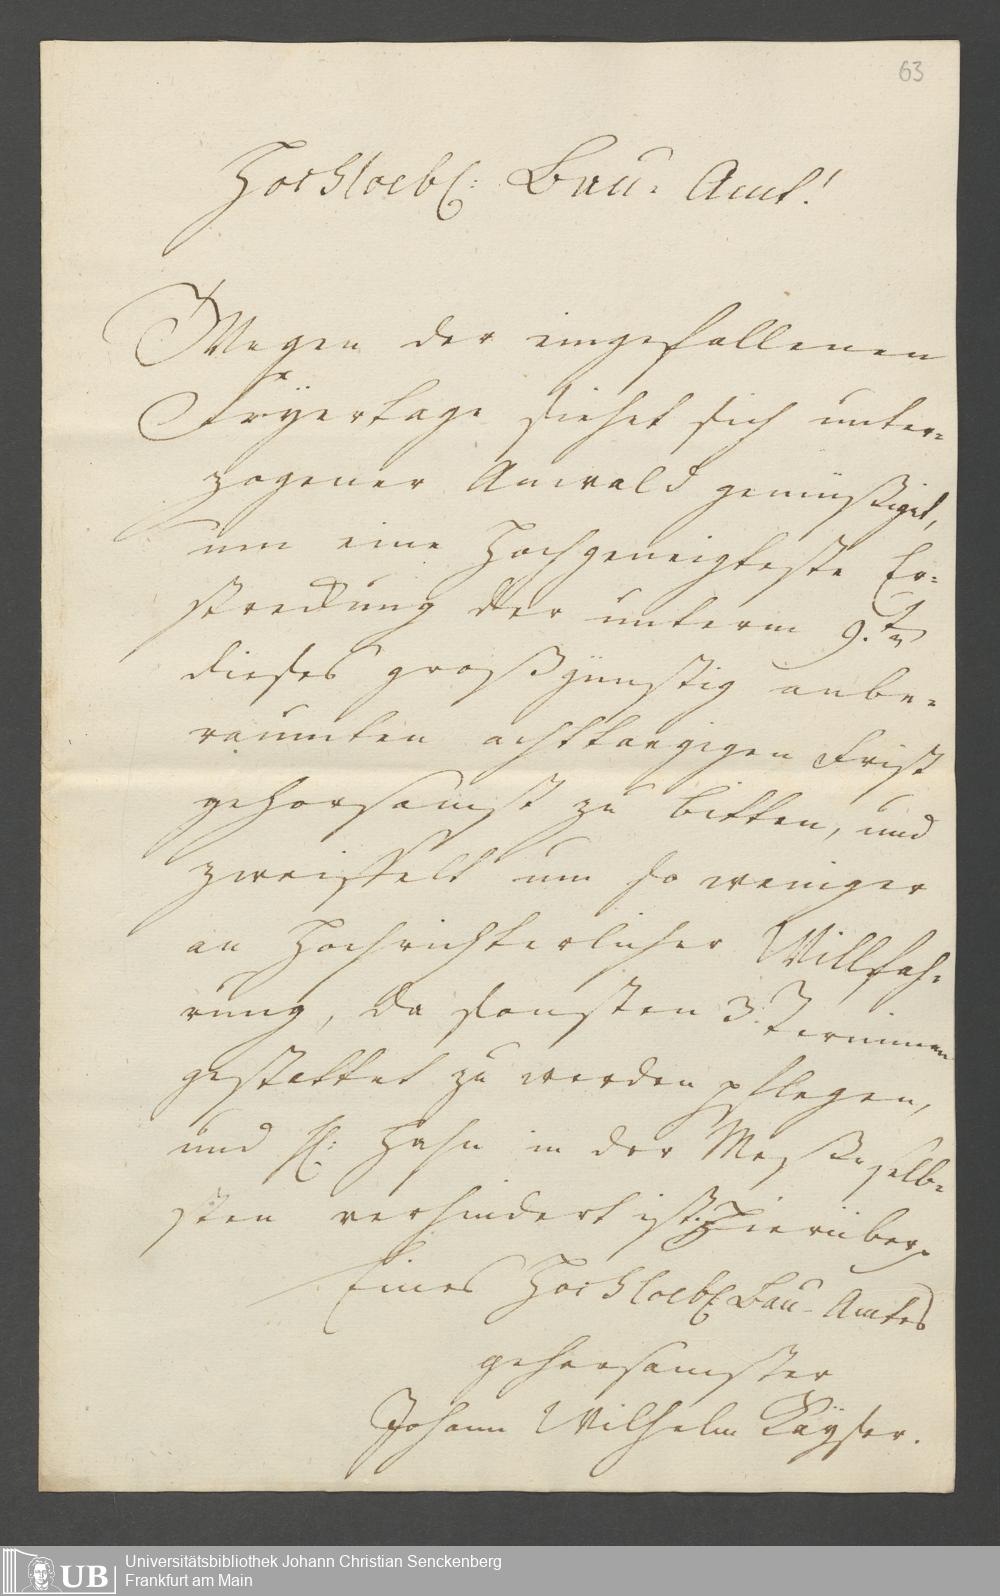 63
Hochloebl: Bau-Amt!
Wegen der eingefallenen
Feyertage siehet sich unter-
zogener Anwald gemüßiget,
um eine Hochgeneigteste Er-
streckung der unterm 9.ten
dieses großgünstig anbe-
raumten achttaegigen Frist
gehorsamst zu bitten, und
zweiffelt um so weniger
an Hochrichterlicher Willfah-
rung, da sonsten 3. Terminen
gestattet zu werden pflegen,
und H: Hahn in der Meße selb-
sten verhindert ist. Hierüber
Eines Hochloebl Bau-Amtes
gehorsamster
Johann Wilhelm Kayser.
UB
Universitätsbibliothek Johann Christian Senckenberg
Frankfurt am Main